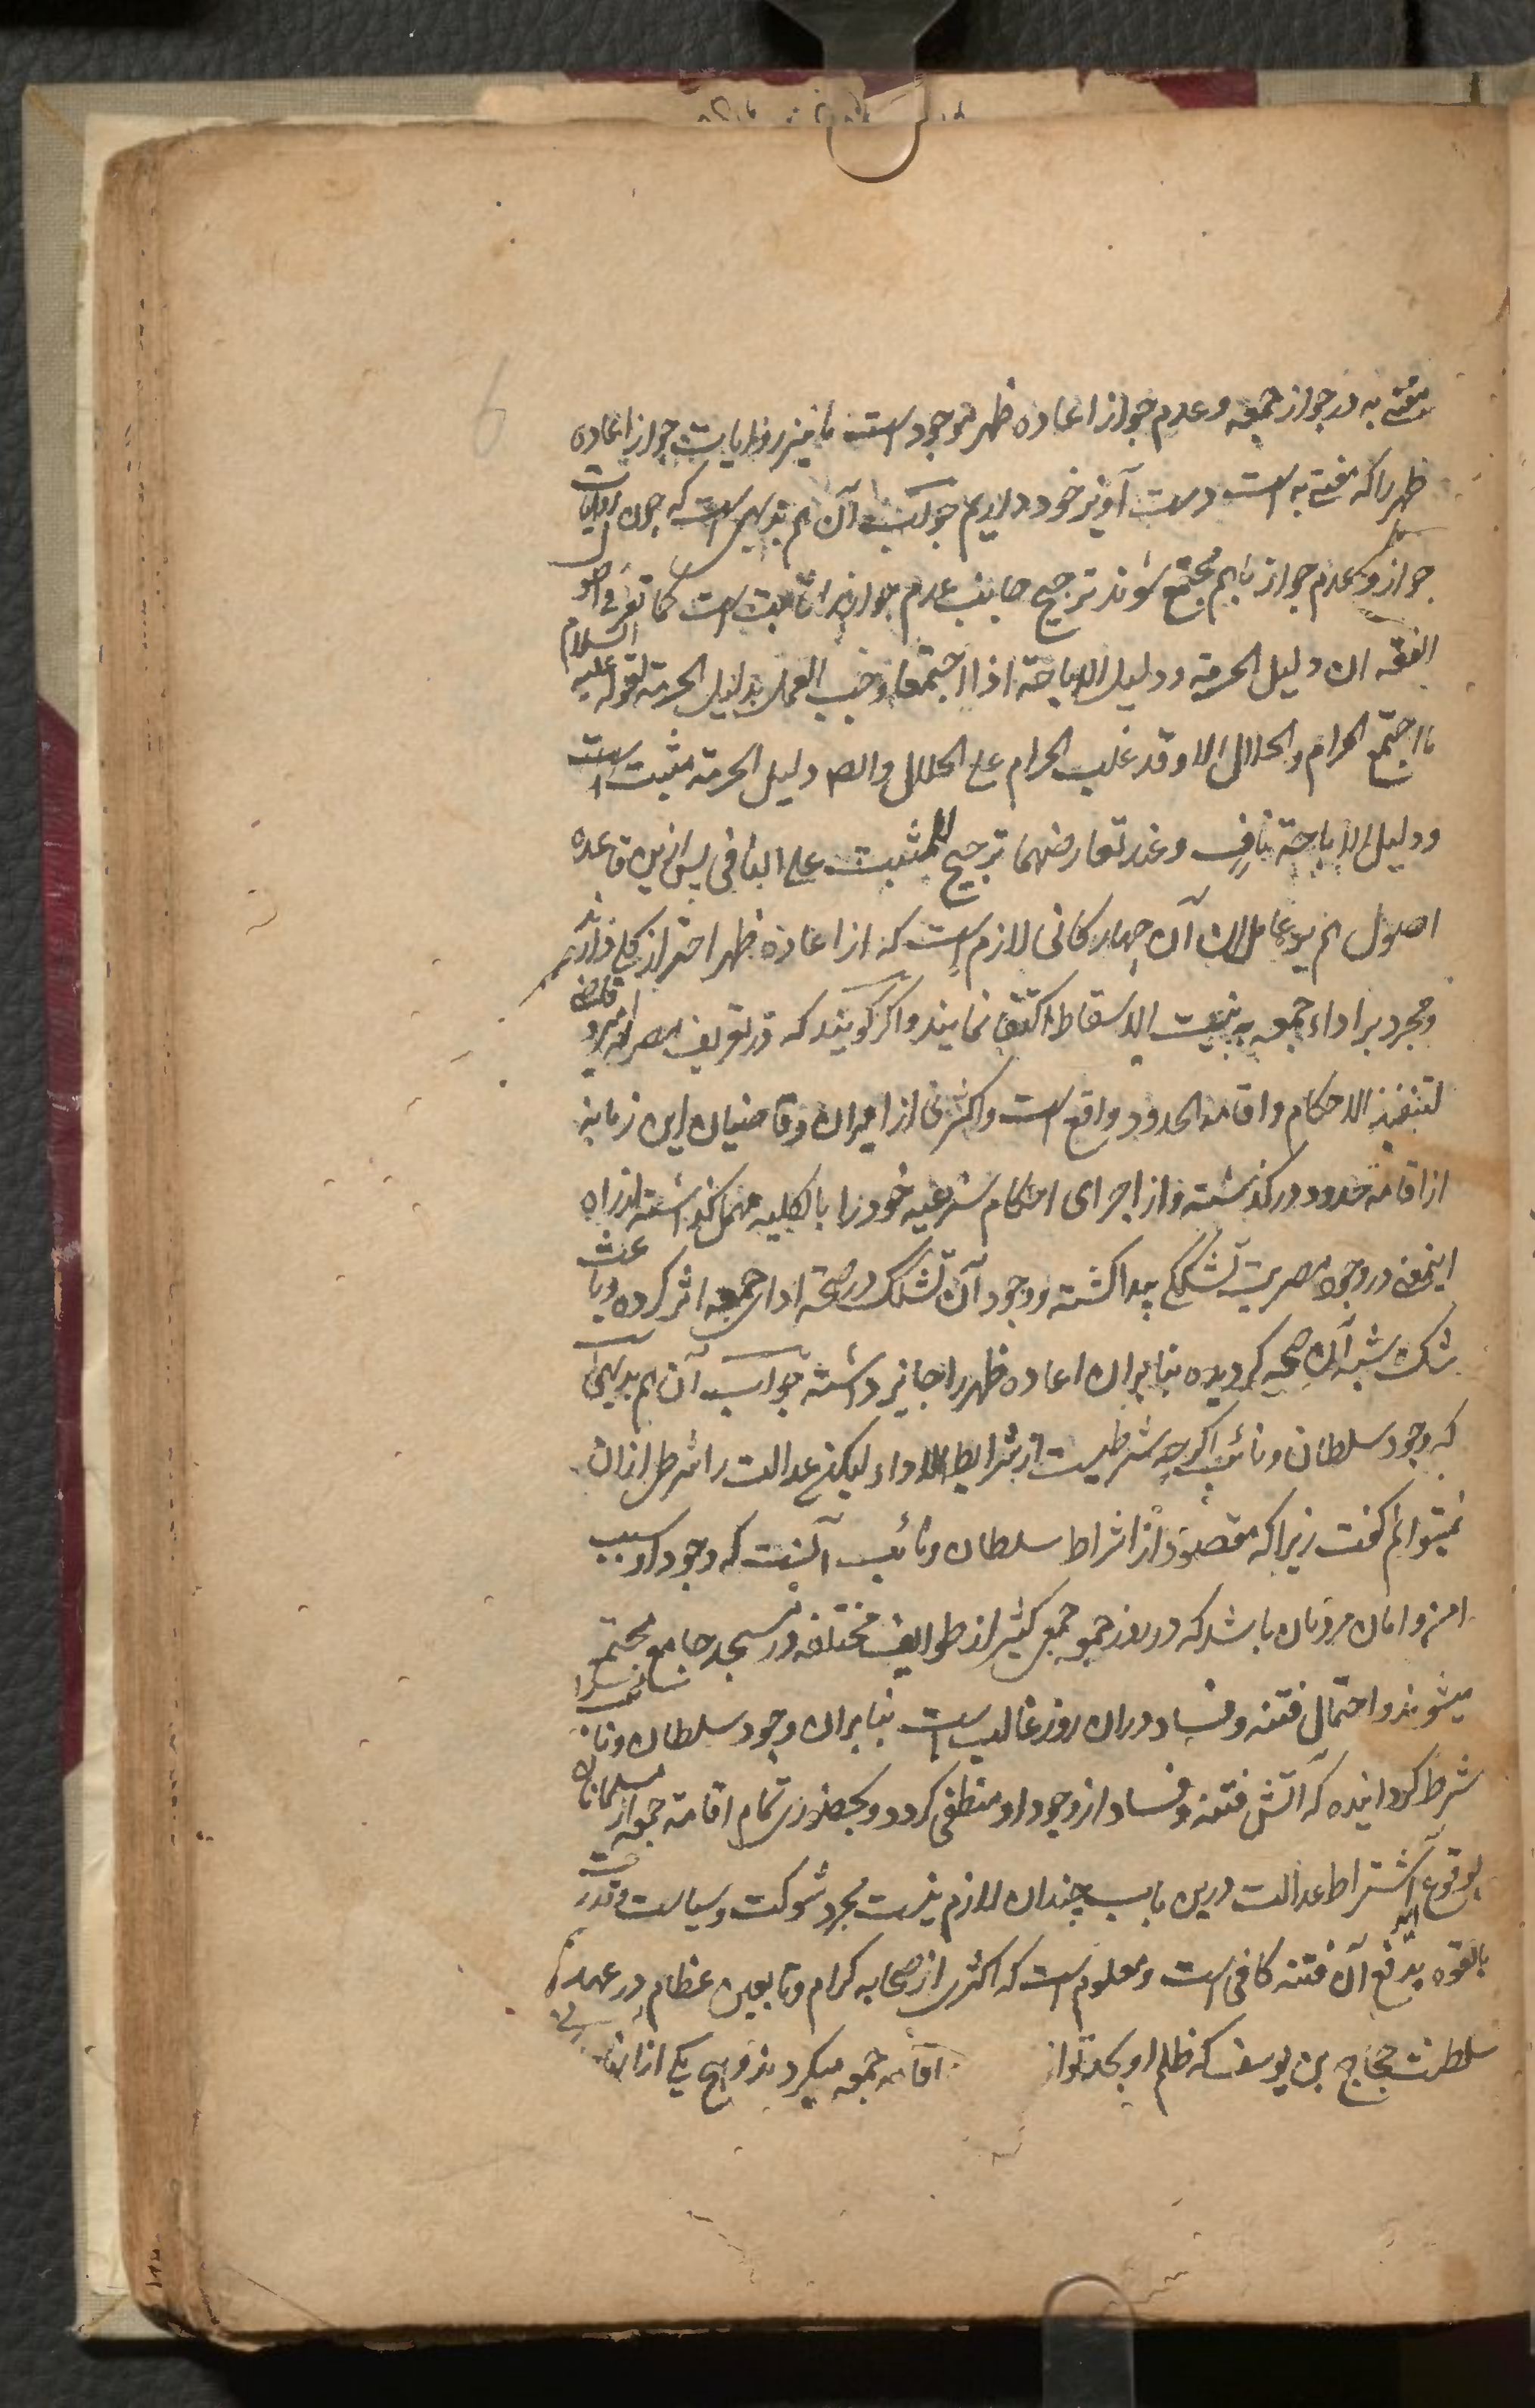 مفتی به در جواز جمعه و عدم جواز اعاده ظهر موجود است ما نیز روایات جواز اعاده
ظهر را که مفتی به است دست آویز خود داریم جوابش آن هم بدیهی است که چون روایات
جواز و عدم جواز باهم مجتمع شوند ترجیح جانب عدم جواز را ثابت است کما تقرر فی اصول
الفقه ان دلیل الحرمة ودلیل الاباحة اذا اجتمعا وجب العمل بدلیل الحرمة لقوله علیه السلام
ما اجتمع الحرام والحلال الا وقد غلب الحرام علی الحلال والصـ دلیل الحرمة مثبت است
ودلیل الاباحة نافٍ وعند تعارضهما ترجیح للمثبت علی النافی پس ازین قاعده
اصول هم بر عاملان آن چهار کانی لازم است که از اعاده ظهر احتراز کلی دارند
و مجرد بر اداء جمعه به نیت الاسقاط اکتفا نمایند و اکر کویند که در تعریف مصر امیر و قاضی
لتنفیذ الاحکام واقامة الحدود واقع است و اکثری از امیران و قاضیان این زمانه
از اقامة حدود درکذشته و از اجرای احکام شرعیه خود را بالکلیه مهمل کذاشته از راه
اینمعنی در وجود مصریت تشککی پیدا کشته و وجود آن تشکک در صحة ادای جمعه اثر کرده و باعث
شک شبه آن صحیه کردیده بنا بران اعاده ظهر را جایز داشته جواب آن هم بدیهی
که وجود سلطان و نائب اکرچه شرطیست از شرایط الاداء لیکن عدالت را شرط ازان
نمیتوانم کفت زیرا که مقصود از اشراط سلطان و نائب آنست که وجود او سبب
امن و امان مردمان باشد که در روز جمعه جمعی کثیر از طوایف مختلفه در مسجد جامع مجتمع
میشوند و احتمال فتنه و فساد دران روز غالب است بنا بران وجود سلطان و نائبش را
شرط کردانیده که آتش فتنه و فساد از وجود او منطفی کردد و بحضوری تمام اقامة جمعه از مسلمانان
بوقوع آید اشتراط عدالت درین باب چندان لازم نیست مجرد شوکت و سیاست و قدرت
بالقوه بدفع آن فتنه کافی است و معلوم است که اکثری از صحابه کرام و تابعین عظام در عهد
سلطنت حجاج بن یوسف که ظلم او بحد تواتر اقامه جمعه میکردند و هیچ یکی از انها